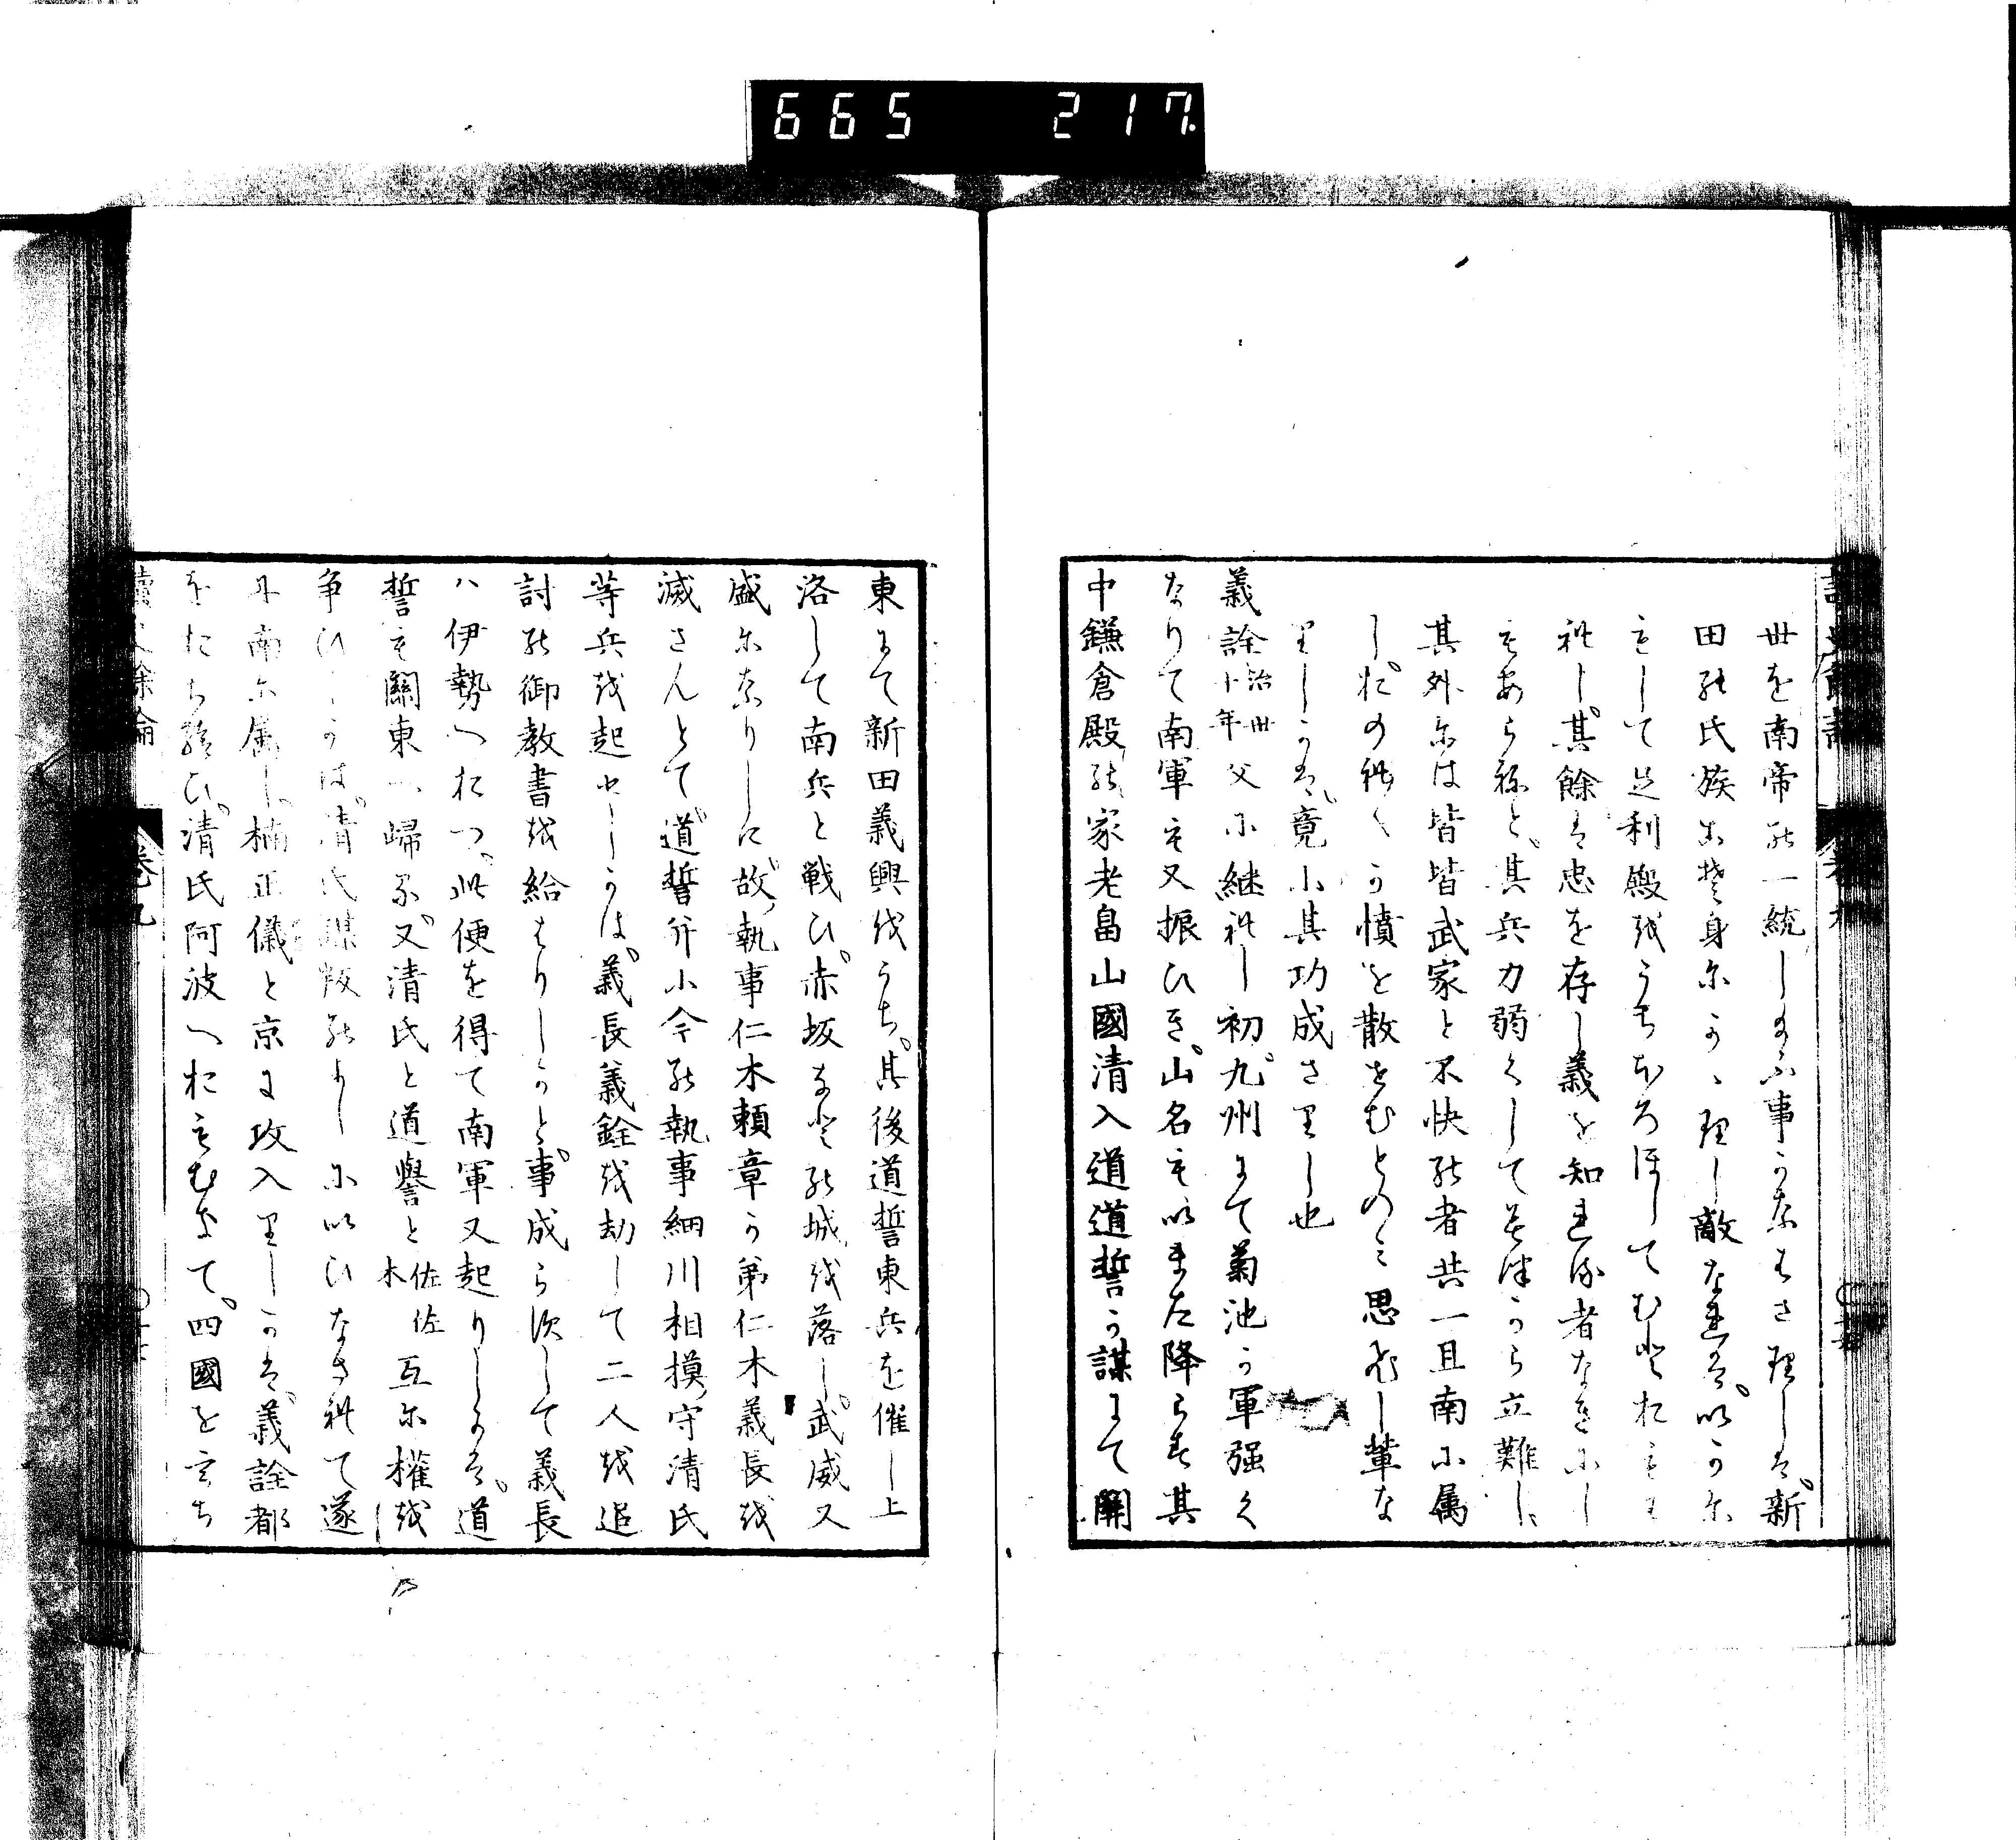 665 217
世を南帝の一統し給ふ事かなはさ理しは新
田の氏族こそ身にかゝ理し敵なれは以かに
もして足利殿をうちほろほしてむとおもは
れし其餘は忠を存し義を知れる者なきにし
もあらねと其兵力弱くして
立難し
其外には皆皆武家と不快の者共一旦南に属
しおのれ〱か憤を散せむとのミ思ひし輩な
りしかは竟に其功成さりし也
義詮治世十年父に継れし初九州にて菊池か軍强く
なりて南軍も又振ひき山名も以また降らす其
中鎌倉殿の家老畠山國清入道道誓か謀にて關
東にて新田義興をうち其後道誓東兵を催し上
洛して南兵と戦ひ赤坂なとの城を落し武威又
盛になりしに故執事仁木頼章か第仁木義長を
滅さんとて道誓并に今の執事細川相摸守清氏
等兵を起申しかは義長義銓を劫して二人を追
討の御教書を給はりしかと事成らすして義長
ハ伊勢へおつ此便を得て南軍又起りしかは道
誓も關東へ歸る又清氏と道譽と佐佐木互に權を
争ひしかは清氏謀叛のよしに以ひなされて遂
に南に属し楠正儀と京に攻入りしかは義詮都
をおち給ひ清氏阿波へおもむきて四國をうち
讀史餘論
卷九